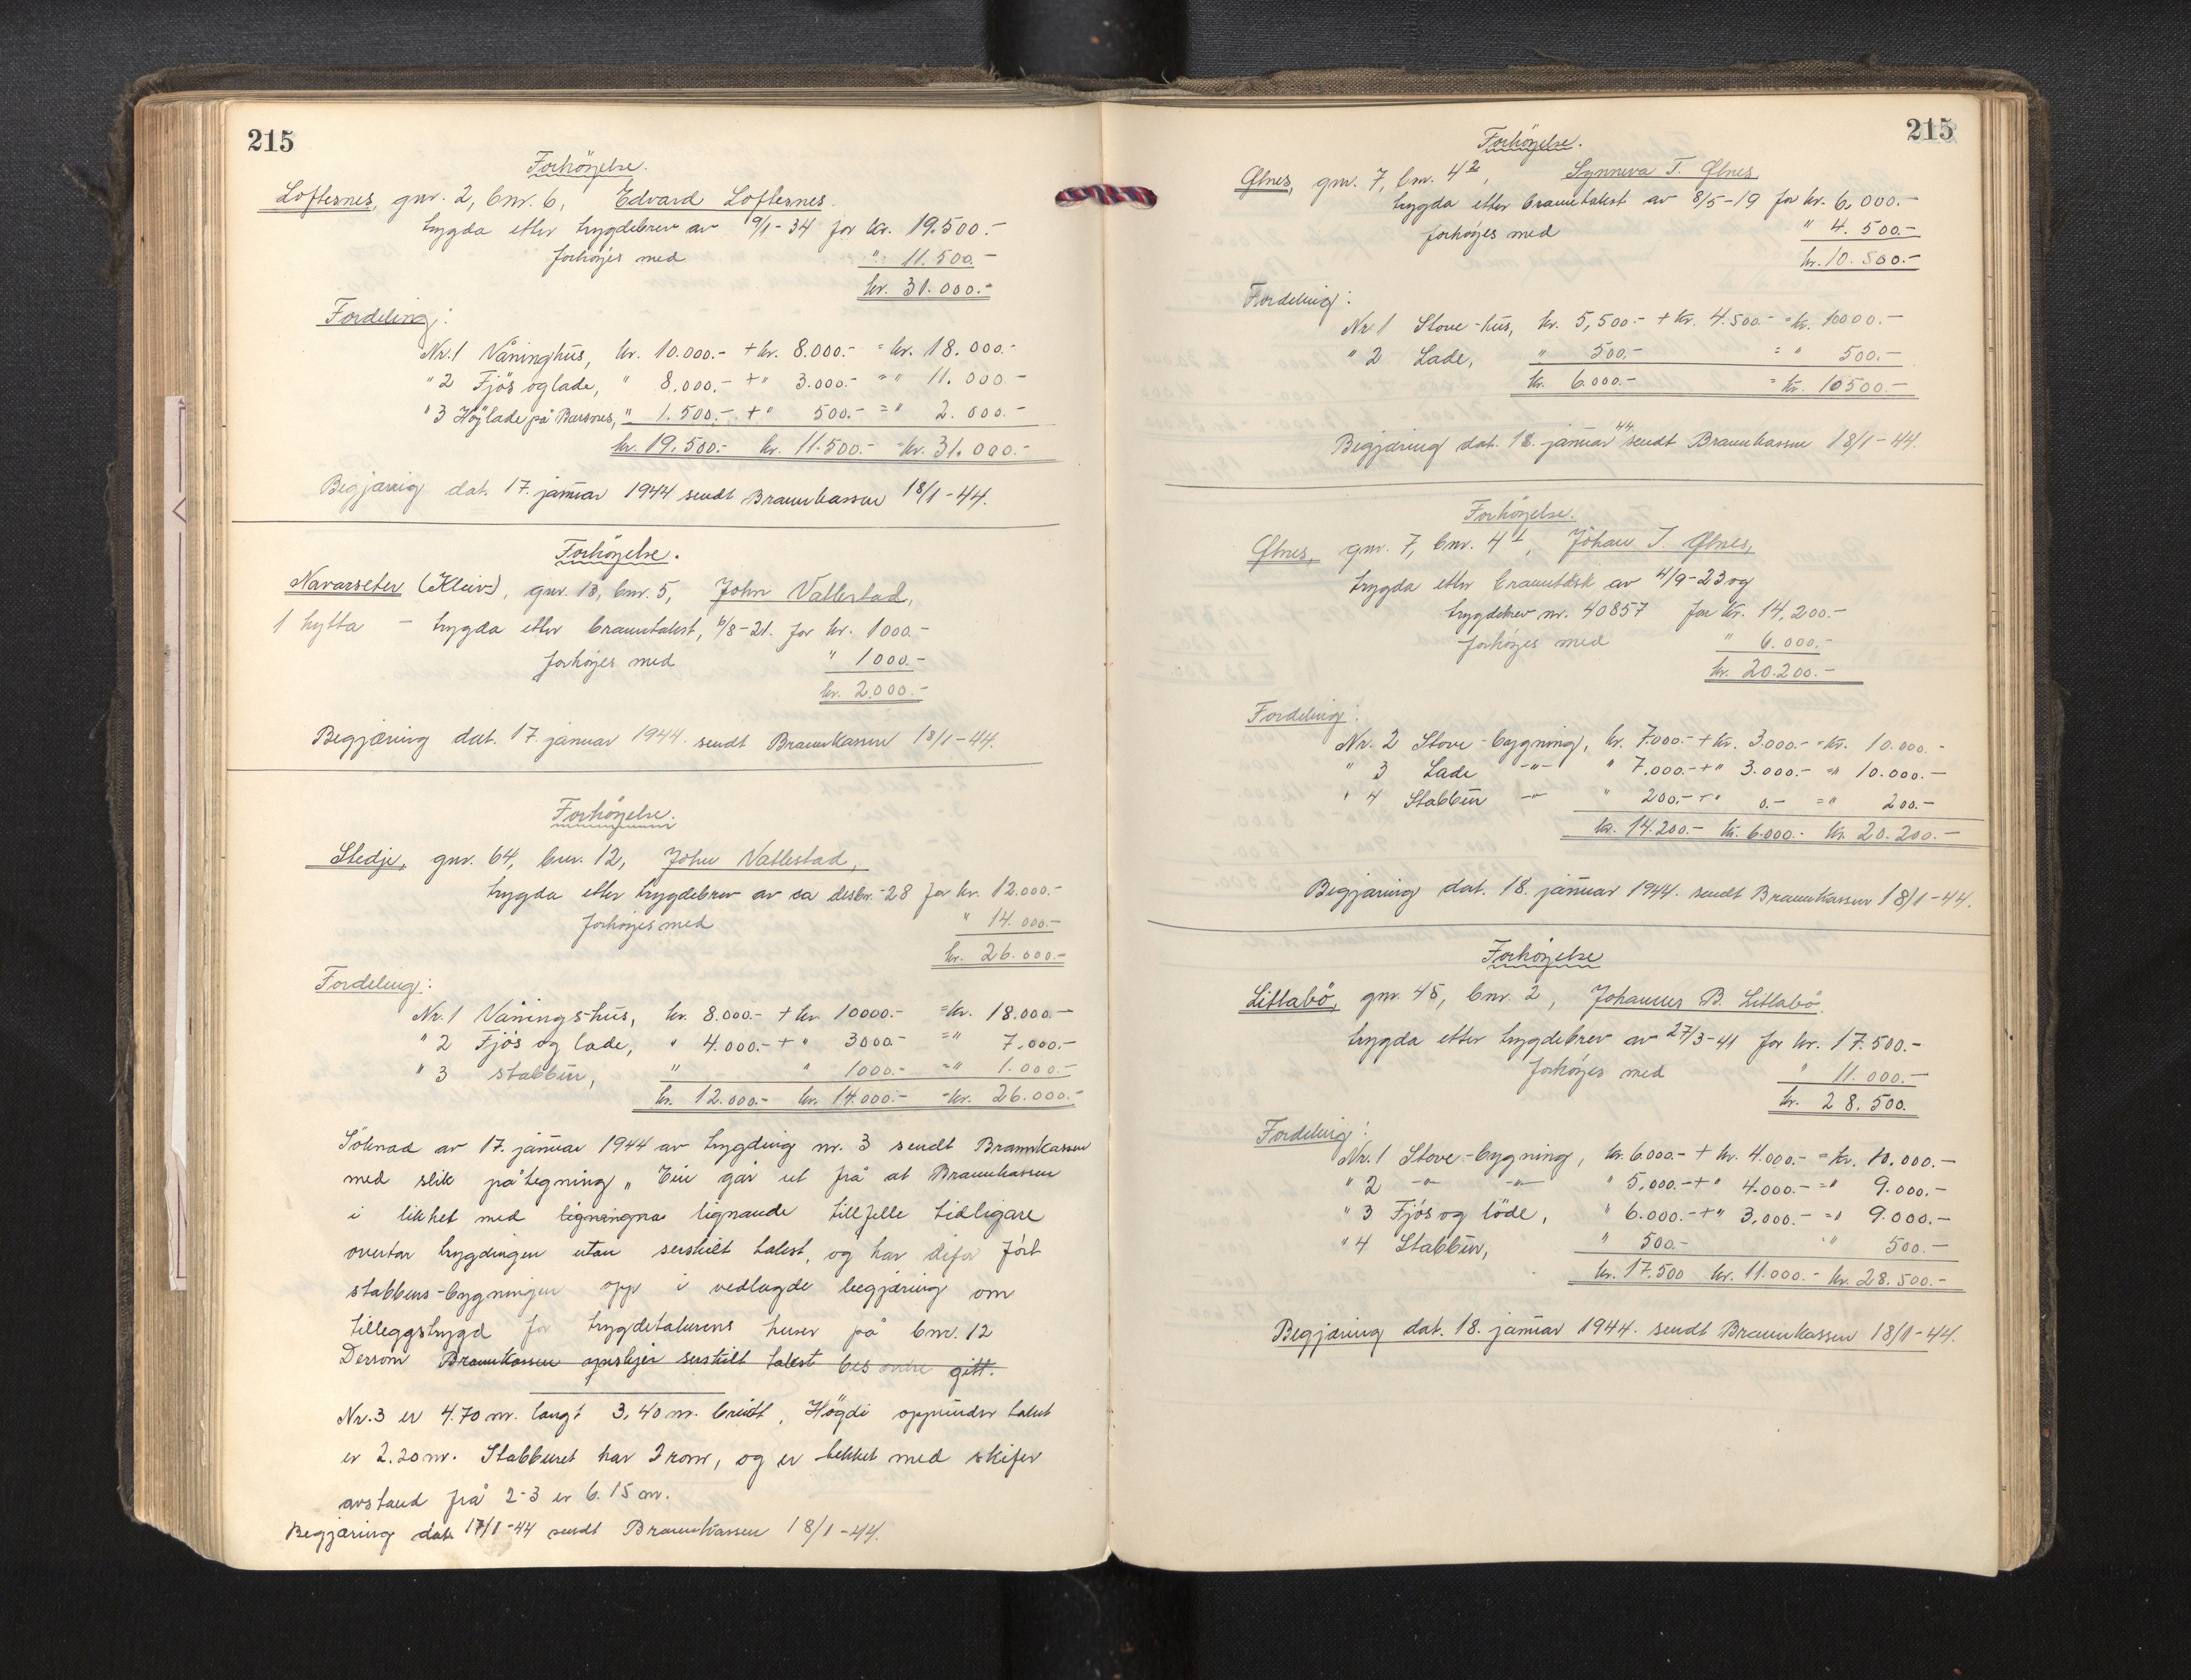 215
Forhöyelse.
Loftesnes, gnr. 2, bnr. 6, Edvard Loftesnes.
trygda etter trygdebrev av 9/1-34 for kr. 19.500.-
forhöyes med " 11.500.-
kr. 31.000.-
Fordeling:
Nr. 1 Våninghus, kr. 10.000.- + kr. 8.000.- = kr. 18.000.-
" 2 Fjös og lade, " 8.000.- + " 3.000.- = " 11.000-
" 3 Höylade på Barsnes, " 1.500.- + " 500.- = " 2.000.-
kr. 19.500.- kr. 11.500.- = kr. 31.000.-
Begjæring dat. 17. januar 1944 sendt Brannkassen 18/1-44.
Forhöyelse.
Navarseter (Kleiv), gnr. 13, bnr. 5, John Vallestad,
1 hytta - trygda etter branntakst, 6/8-21. for kr. 1000.-
forhöyes med " 1000.-
kr. 2.000.-
Begjæring dat. 17. januar 1944. sendt Brannkassen 18/1-44.
Forhöyelse.
Stedje, gnr. 64, bnr. 12, John Vallestad,
trygda etter trygdebrev av ca desbr.-28 for kr. 12.000.-
forhöyes med " 14.000.-
kr. 26.000.-
Fordeling:
Nr. 1 Vånings-hus, kr. 8.000.- + kr 10000.- = kr. 18.000.-
" 2 Fjös og lade, " 4.000.- + " 3000.- = " 7.000.-
" 3 stabbur, " " 1000.- = " 1.000.-
kr. 12.000.- kr. 14.000.- = kr. 26.000.-
Söknad av 17. januar 1944 av trygding nr. 3 sendt Brannkassen
med slik påtegning „ Ein går ut frå at Brannkassen
i likhet med lignande tilfelle tidligare
overtar trygdingen utan serskilt takst, og har difor fört
stabburs-bygningen opp i vedlagde begjæring om
tilleggstrygd for trygdetakerens huser på bnr. 12
Dersom Brannkassen ynskjer serskilt takst bes ordre gitt.
Nr. 3 er 4.70 m. langt 3,40 m. breidt, Högdi oppunder taket
er 2.20 m. Stabburet har 2 rom, og er tekket med skifer
avstand frå 2-3 er 6.15 m.
Begjæring dat. 17/1-44 sendt Brannkassen 18/1-44.
215
Forhöyelse.
Ölnes, gnr. 7, bnr. 4², Synneva T. Ölnes,
trygda etter branntakst av 8/5-19 for kr. 6.000.-
forhöyes med " 4.500.-
kr. 10.500.-
Fordeling:
Nr 1 Stove-hus, kr. 5,500.- + kr. 4.500.- = kr. 10000.-
" 2 Lade, " 500.- = " 500.-
kr. 6.000.- = kr. 10500.-
Begjæring dat. 18. januar 44 sendt Brannkassen 18/1-44.
Forhöyelse.
Ölnes, gnr. 7, bnr. 4¹, Johan T. Ölnes,
trygda etter branntakst av 4/9-23 og
trygdebrev nr. 40857 for kr. 14,200.-
forhöyes med " 6.000.-
kr. 20.200.-
Fordeling:
Nr. 2 Stove-bygning, kr. 7.000.- + kr. 3.000.- = kr. 10.000.-
" 3 Lade -"- " 7.000.- + " 3.000.- = " 10.000.-
" 4 Stabbur -"- " 200.- + " 0.- = " 200.-
kr. 14.200.- kr. 6.000.- kr. 20.200.-
Begjæring dat. 18. januar 1944. sendt Brannkassen 18/1-44.
Forhöyelse
Litlabö, gnr. 45, bnr. 2, Johannes B. Litlabö.
trygda etter trygdebrev av 27/3-41 for kr. 17.500.-
forhöyes med " 11.000.-
kr. 28.500.
Fordeling:
Nr. 1 Stove-bygning, kr. 6.000.- + kr. 4.000.- = kr. 10.000.-
" 2 -"- -"- " 5.000.- + " 4.000.- = " 9.000.-
" 3 Fjös og löde, " 6.000.- + " 3,000.- = " 9.000.-
" 4 Stabbur, " 500.- " 500.-
kr. 17.500 kr. 11.000.- kr. 28.500.-
Begjæring dat. 18. januar 1944. sendt Brannkassen 18/1-44.